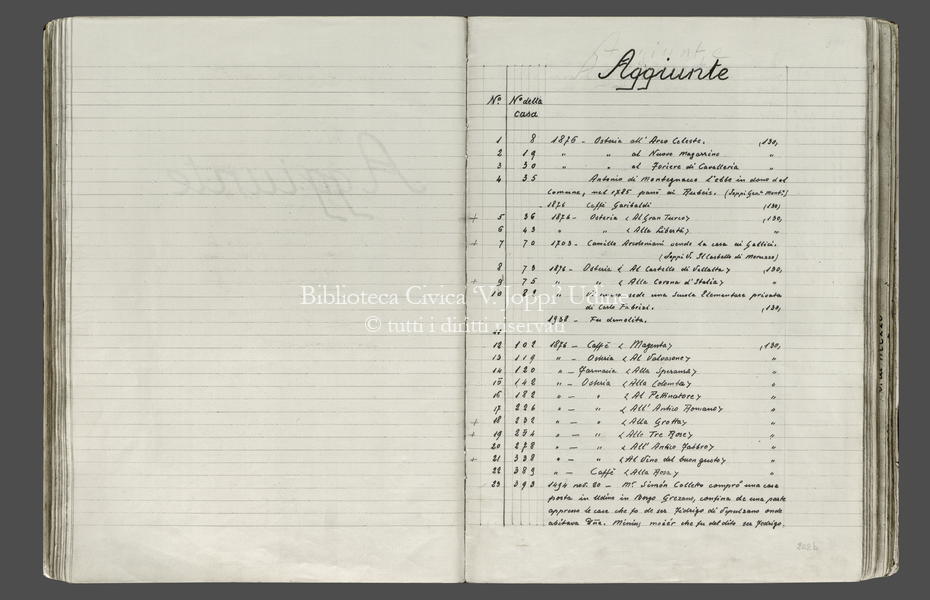 Aggiunte
Nº Nº della
casa
1 8 1876 - Osteria all' Arco Celeste. (130)
2 19 " " al Nuovo Magazzino "
3 30 " " al Foriere di Cavalleria "
4 35 Antonio di Montegnacco l'ebbe in dono dal
Comune, nel 1785 passò ai Rubeis. (Joppi
1876 Caffè Garibaldi (130)
+ 5 36 1876 - Osteria < Al Gran Turco > (130)
6 43 " " < Alla Libertà > "
+ 7 70 1703 - Camillo vende la casa ai Gallici.
(Joppi V. Il Castello di Moruzzo)
8 73 1876 - Osteria < Al Castello di > (130)
+ 9 75 " " < Alla Corona d'Italia > "
10 89 sede una Scuola Elementare privata
di Carlo Fabrizi. (130)
1938 - Fu demolita.
11
12 102 1876 - Caffè < Magenta > (130)
13 119 " - Osteria < Al Valvasone > "
14 120 " - Farmacia < Alla Speranza > "
15 142 " - Osteria < Alla Colomba > "
16 182 " - " < Al Pettinatore > "
17 226 " - " < All' Antico Romano > "
+ 18 232 " - " < Alla Grotta > "
+ 19 254 " - " < Alle Tre Rose > "
20 278 " - " < All' Antico Fabbro > "
+ 21 338 " - " < Al Vino del buon gusto > "
22 389 " - Caffè < Alla Rosa > "
23 393 1494 nov. 20 - Mº Simón Colletto comprò una casa
posta in Udine in Borgo Grezano, confina de una parte
appresso le case che fo de ser Fidrigo di onde
abitava Dña. Minini moiér che fu del dito ser Fedrigo.
Biblioteca Civica 'V. Joppi' Udine
© tutti i diritti riservati
202b